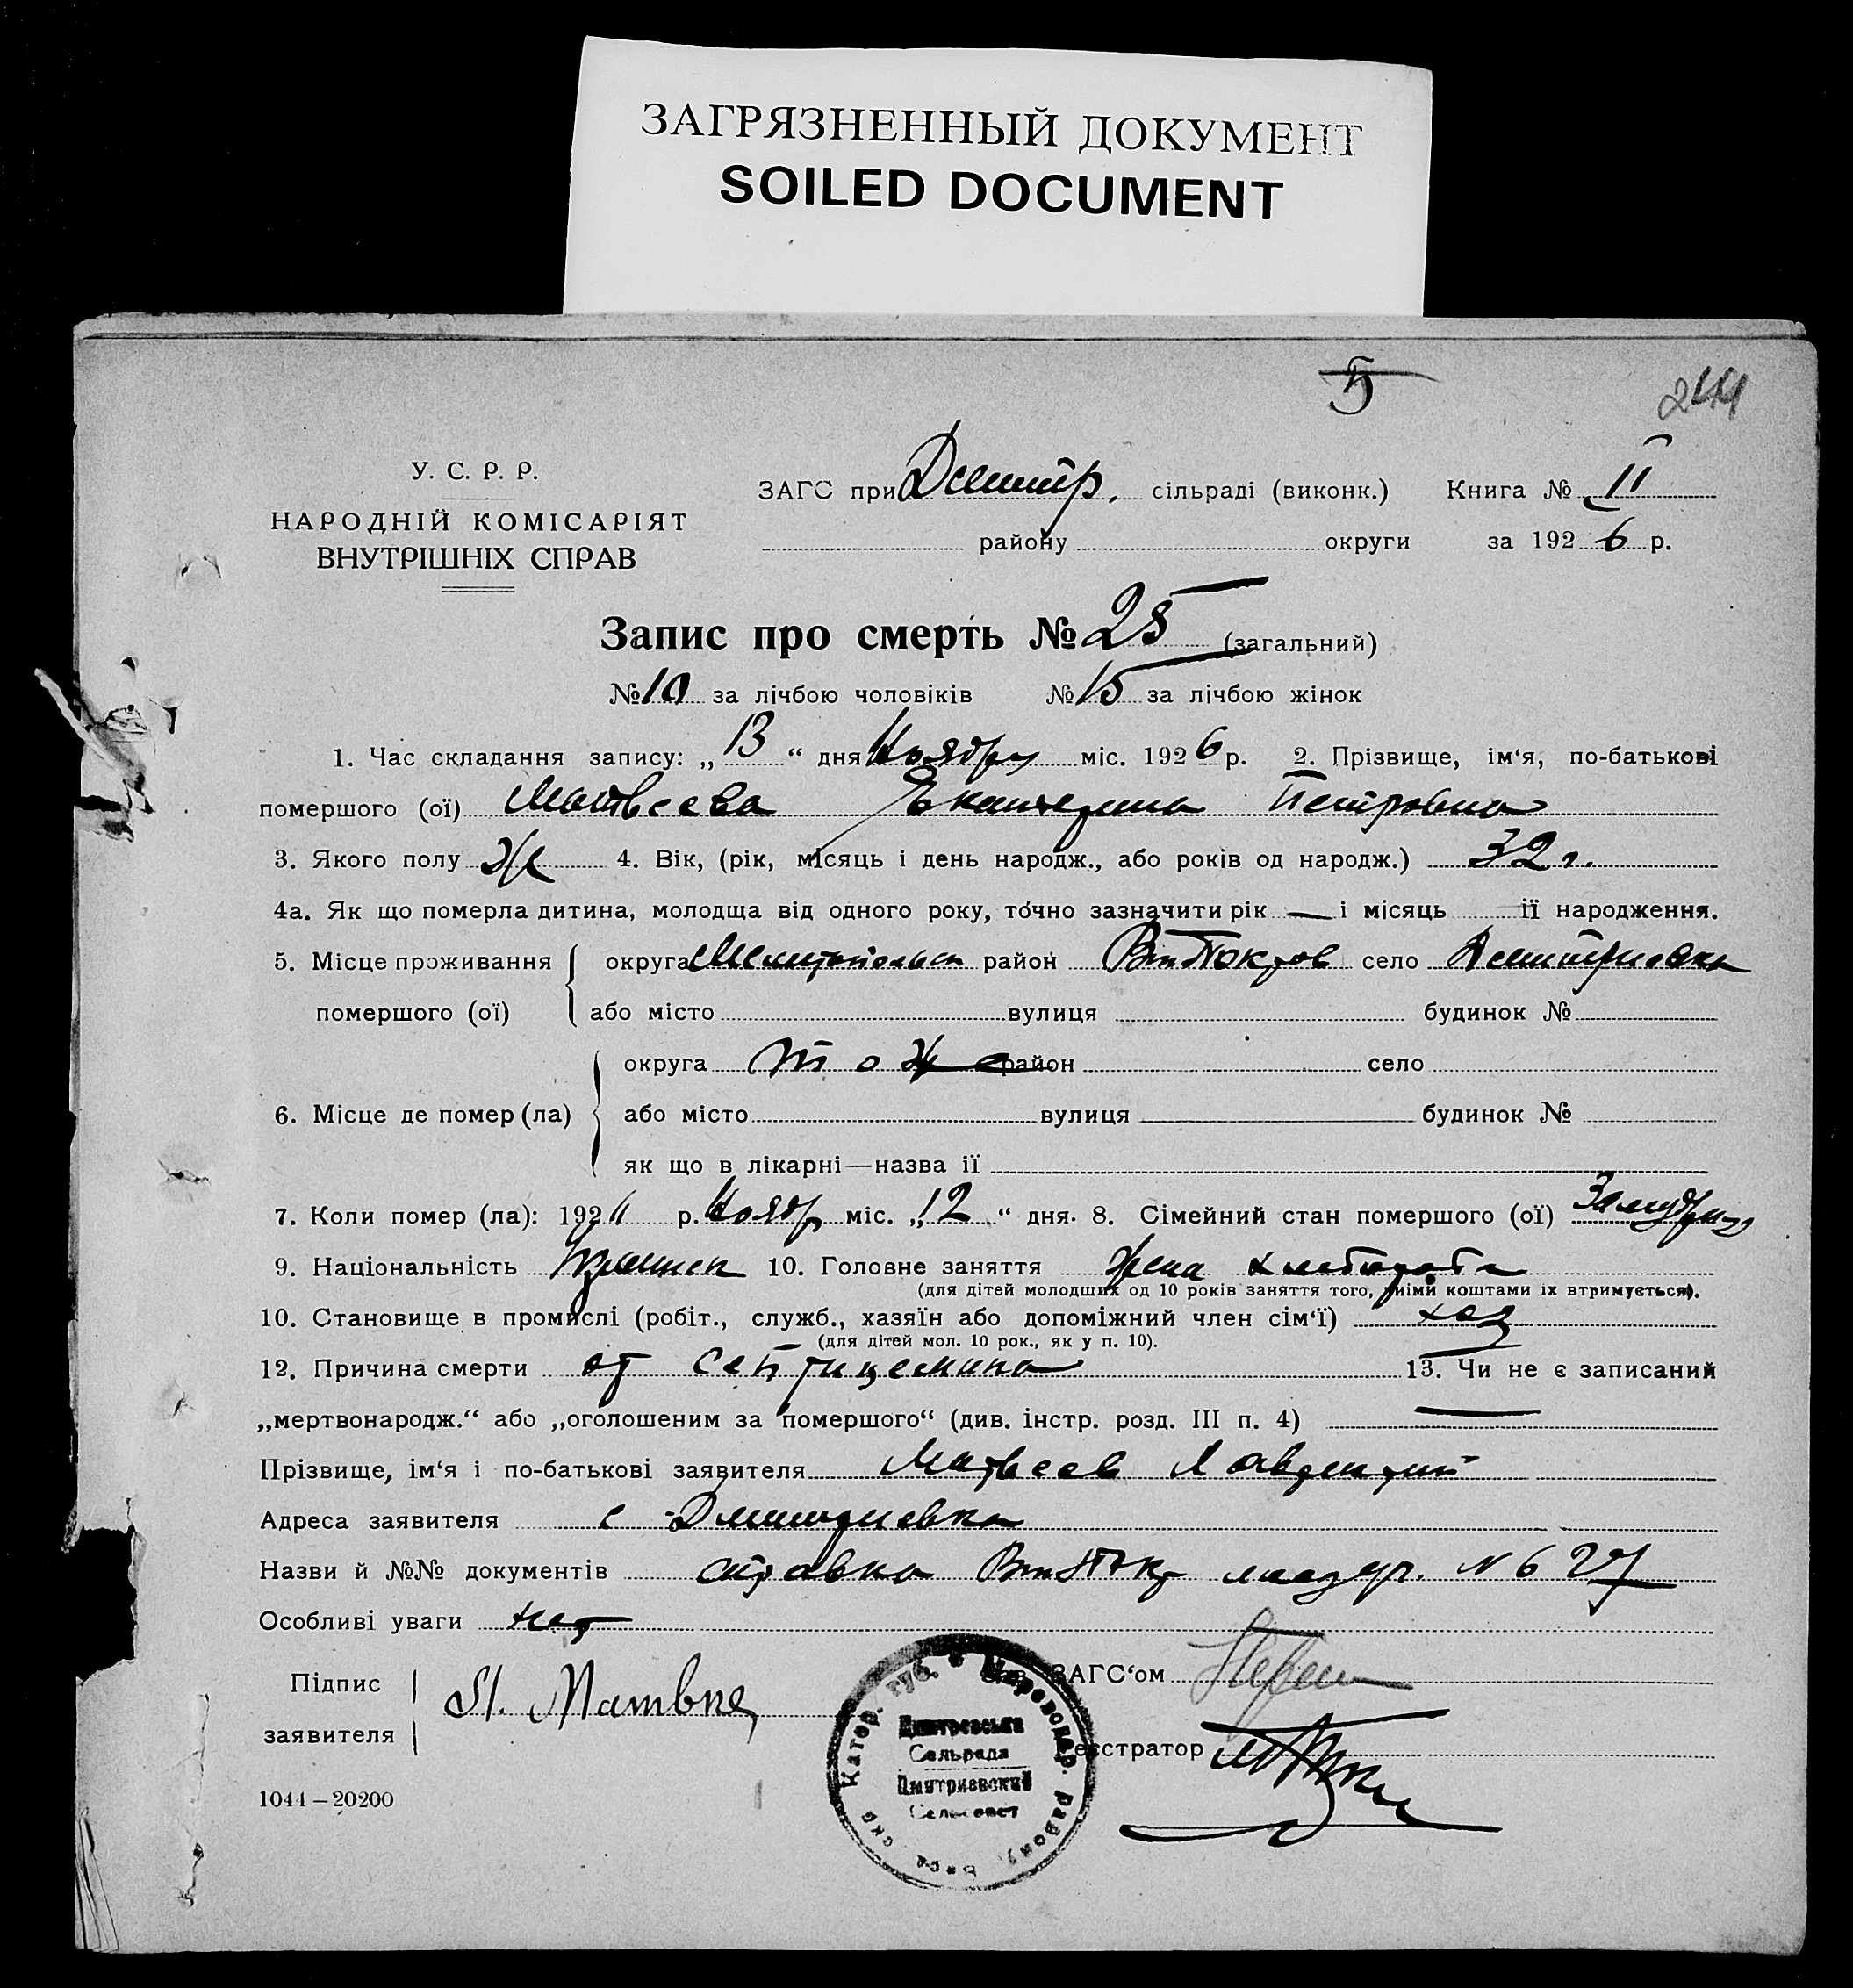 ЗАГРЯЗНЕННЫЙ ДОКУМЕНТ
SOILED DOCUMENT
5
244
У. С. Р. Р.
НАРОДНІЙ КОМІСАРІЯТ
ВНУТРІШНІХ СПРАВ
ЗАГС при Дмитр. сільраді (виконк.) Книга № II
району округи за 1926 р.
Запис про смерть № 25 (загальний)
№ 10 за лічбою чоловіків № 15 за лічбою жінок
1. Час складання запису: „13“ дня Ноября міс. 1926 р. 2. Прізвище, ім‘я, по-батькові
помершого (ої) Матвеева Екатерина Петровна
3. Якого полу Ж 4. Вік, (рік, місяць і день народж., або років од народж.) 32 г.
4а. Як що померла дитина, молодща від одного року, точно зазначити рік — і місяць її народження.
5. Місце проживання округа район село Дмитриевка
помершого (ої) або місто вулиця будинок №
округа тоже район село
6. Місце де помер (ла) або місто вулиця будинок №
як що в лікарні—назва її
7. Коли помер (ла): 192 р.Ноябр міс. „12“ дня. 8. Сімейний стан помершого (ої)
9. Національність 10. Головне заняття жена хлебороба
(для дітей молодших од 10 років заняття того, чиїми коштами їх втримується).
10. Становище в промислі (робіт., служб., хазяїн або допоміжний член сім‘ї) хоз
(для дітей мол. 10 рок., як у п. 10).
12. Причина смерти от 13. Чи не є записаний
„мертвонародж.“ або „оголошеним за помершого“ (див. інстр. розд. III п. 4) —
Прізвище, ім‘я і по-батькові заявителя Матвеев Лаврентий
Адреса заявителя с Дмитриевка
Назви й №№ документів справка N 627
Особливі уваги нет
Підпис
заявителя
Зав. ЗАГС‘ом
Реєстратор
Катер. губ.
Дмитревська
Сельрада
Дмитриевский
Сельсовет
1044 – 20200